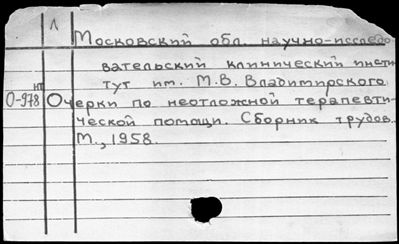 Л
Московский обл. научно-исследо
вательский клинический инсти
тут им. М.В. Владимирского
нп
О-978 Очерки по неотложной терапевти-
ческой помощи. Сборник трудов.
М., 1958.